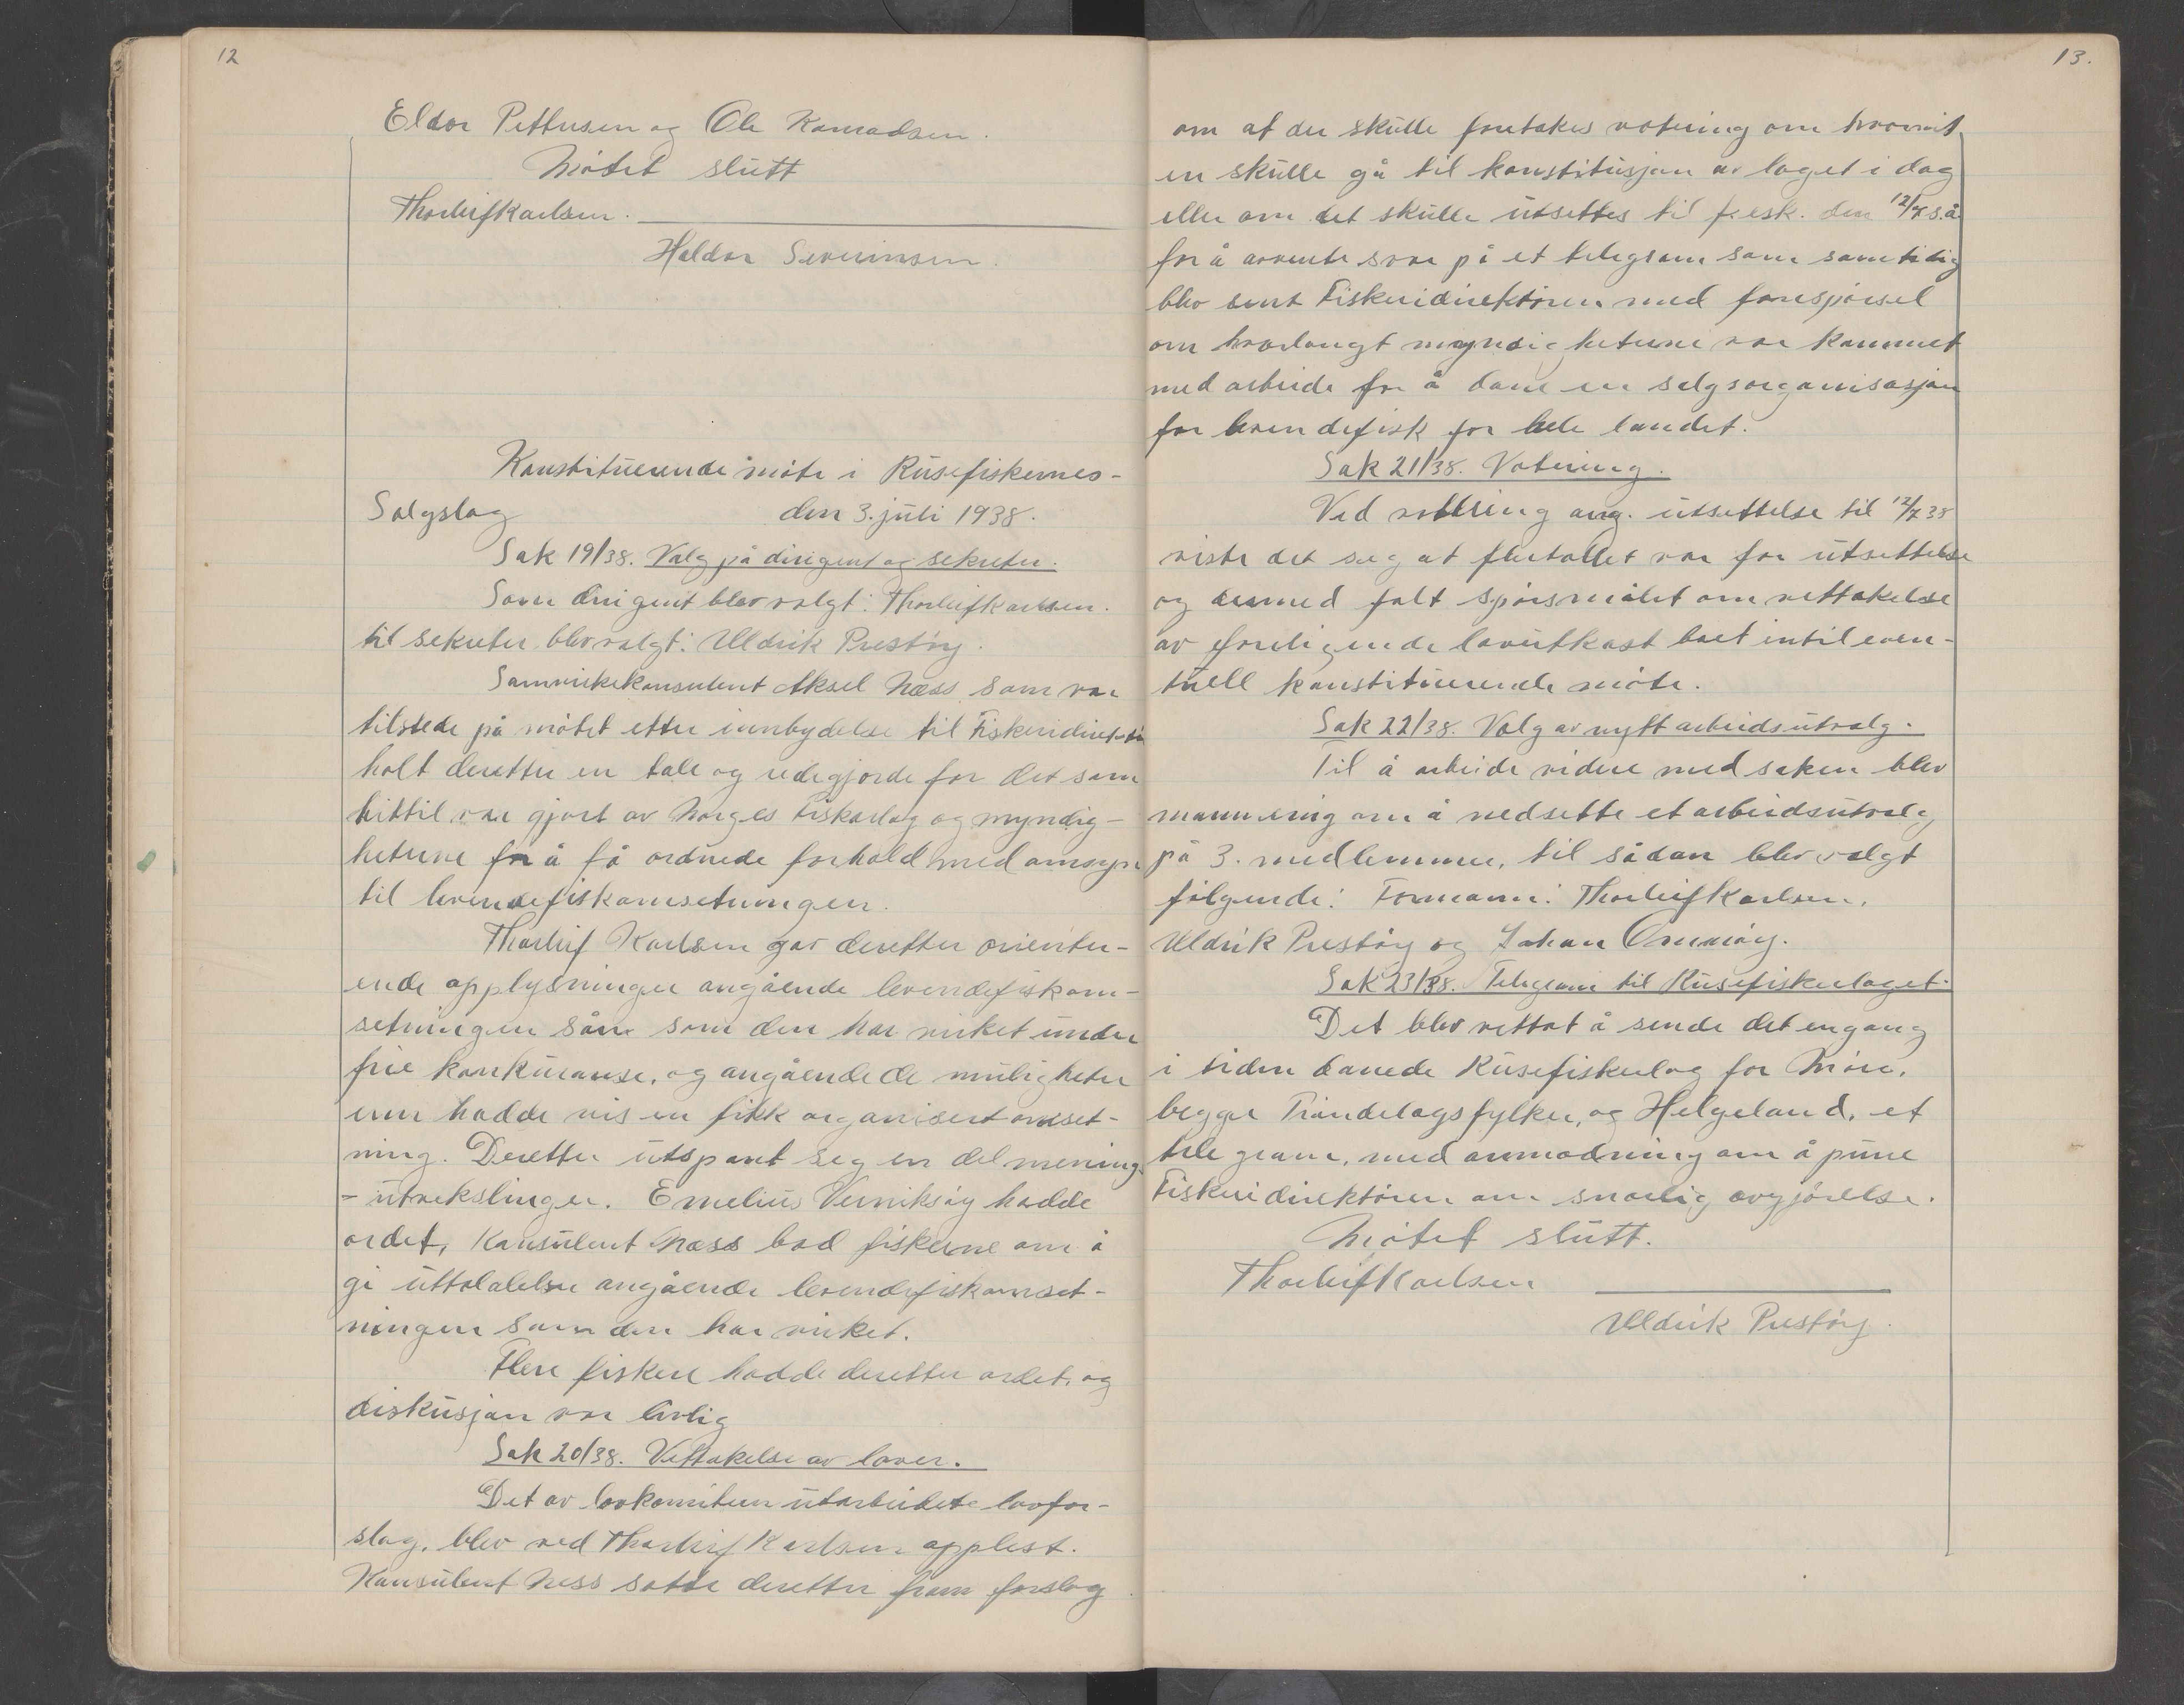 12
Eldor Pettersen og Ole Konradsen.
Møtet slutt
Thorleif Karlsen.
Haldor Severinsen.
Konstituerende møte i Rusefiskernes-
Salgslag den 3. juli 1938.
Sak 19/38. Valg på dirigent og sekretær.
Som dirigent blev valgt: Thorleif Karlsen.
til sekretær blev valgt: Uldrik Prestøy.
Samvirkekonsulent Aksel Næss som var
tilstede på møtet etter innbydelse til Fiskeridirektør
holt deretter en tale og redegjorde for det som
hittil var gjort av Norges Fiskarlag og myndig-
hetene for å få ordnede forhold med omsyn
til levendefiskomsetningen.
Thorleif Karlsen gav deretter orienter-
ende opplysninger angående levendefiskom-
setningen sån som den har virket under
frie konkuranse, og angående de muligheter
enn hadde vis en fikk organisert omset-
ning. Deretter utspant seg en del menings
- utvekslinger. Emelius Verniksøy hadde
ordet, Konsulent Næss bad fiskerne om å
gi uttalalelse angående levendefiskomset-
ningen som den har virket.
Flere fiskere hadde deretter ordet, og
diskusjon var livlig
Sak 20/38. Vettakelse av lover.
Det av lovkomiteen utarbeidete lovfor-
slag, blev ved Thorleif Karlsen opplest.
Konsulent Ness satte deretter fram forslag
13.
om at der skulle foretakes votering om hvorvit
en skulle gå til konstitusjon av laget i dag
eller om det skulle utsettes til f.esk. den 12/7 s.å.
for å avvente svar på et telegram som samtidig
blev sent Fiskeridirektøren med forespørsel
om hvorlangt myndighetene var kommet
med arbeide for å dane en salgsorganisasjon
for levendefisk for hele landet.
Sak 21/38. Votering.
Ved votering ang. utsettelse til 12/7 38
viste det seg at flertallet var for utsettelse
og dermed falt spørsmålet om vettakelse
av foreligende lovutkast bort intil even-
tuell konstituerende møte.
Sak 22/38. Valg av nytt arbeidsutvalg.
Til å arbeide videre med saken blev
mannering om å nedsette et arbeidsutvalg
på 3. medlemmer, til sådan blev valgt
følgende: Formann: Thorleif Karlsen,
Uldrik Prestøy og Johan Ommøy.
Sak 23/38. Telegram til Rusefiskerlaget.
Det blev vettat å sende det engang
i tiden danede Rusefiskerlag for Møre,
begge Trøndelagsfylker, og Helgeland, et
telegram, med anmodning om å purre
Fiskeridirektøren om snarlig avgjørelse.
Møtet slutt.
Thorleif Karlsen
Uldrik Prestøy.